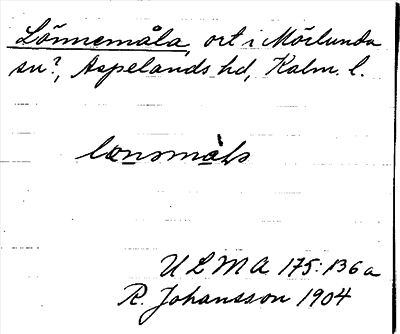 Lönnemåla, ort i Mörlunda
sn?, Aspelands hd, Kalm. l.
lönsmåls
ULMA 175:136a
R. Johansson 1904